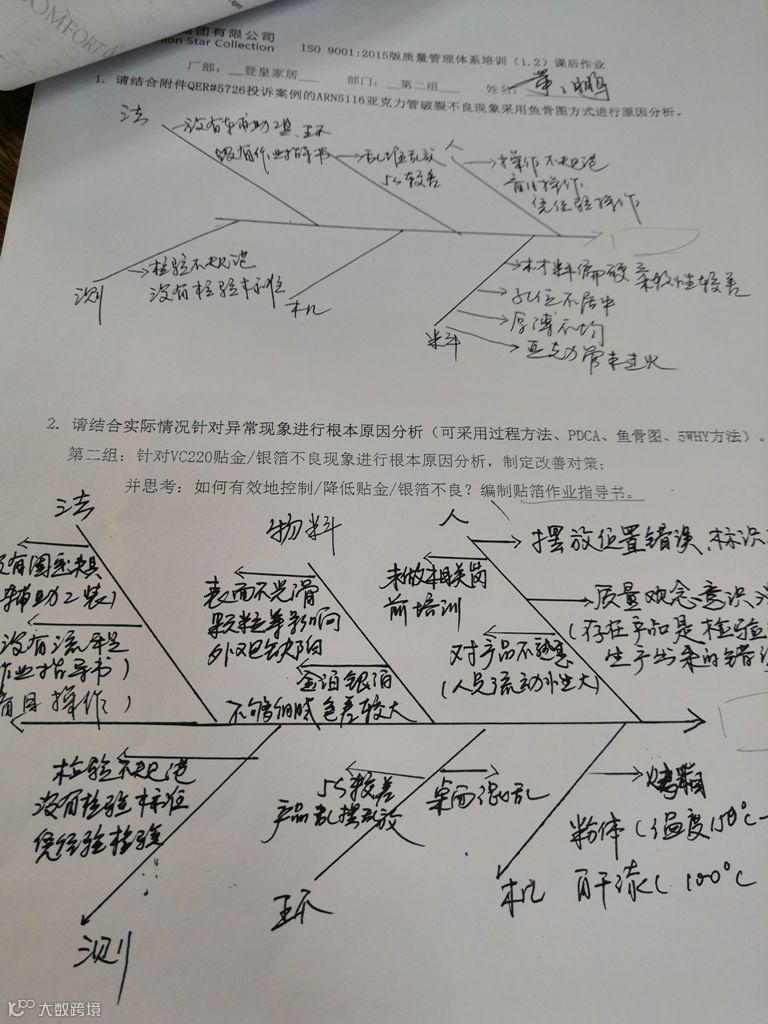 COMFORT &
集团有限公司
ion Star Collection
ISO 9001:2015版质量管理体系培训（1.2）课后作业
厂部：登皇家居 部门：第二组 姓名：
1. 请结合附件QER#5726投诉案例的ARN5116亚克力管破裂不良现象采用鱼骨图方式进行原因分析。
法
没有作业指导书
乱堆乱放
5S较差
人
操作不规范
盲目操作
凭经验操作
测
检验不规范
没有检验标准
机
料
材料偏硬 柔软性较差
孔位不居中
厚薄不均
亚克力管未退火
2. 请结合实际情况针对异常现象进行根本原因分析（可采用过程方法、PDCA、鱼骨图、5WHY方法）。
第二组：针对VC220贴金/银箔不良现象进行根本原因分析，制定改善对策；
并思考：如何有效地控制/降低贴金/银箔不良？编制贴箔作业指导书。
法
没有固定夹具
辅助工装）
没有流程
作业指导书）
盲目操作）
物料
表面不光滑
颗粒等影响
外观缺陷
金泊银泊
色差较大
人
未做相关岗
前培训
对产品不熟悉
（人员流动性大）
摆放位置错误、标识
质量观念意识
（存在产品是检验
生产出来的错
检验不规范
没有检验标准
凭经验检验
测
5S较差
产品乱摆乱放
桌面混乱
环
机
烤箱
粉体（温度150°C-
风干流（100°C
大数跨境